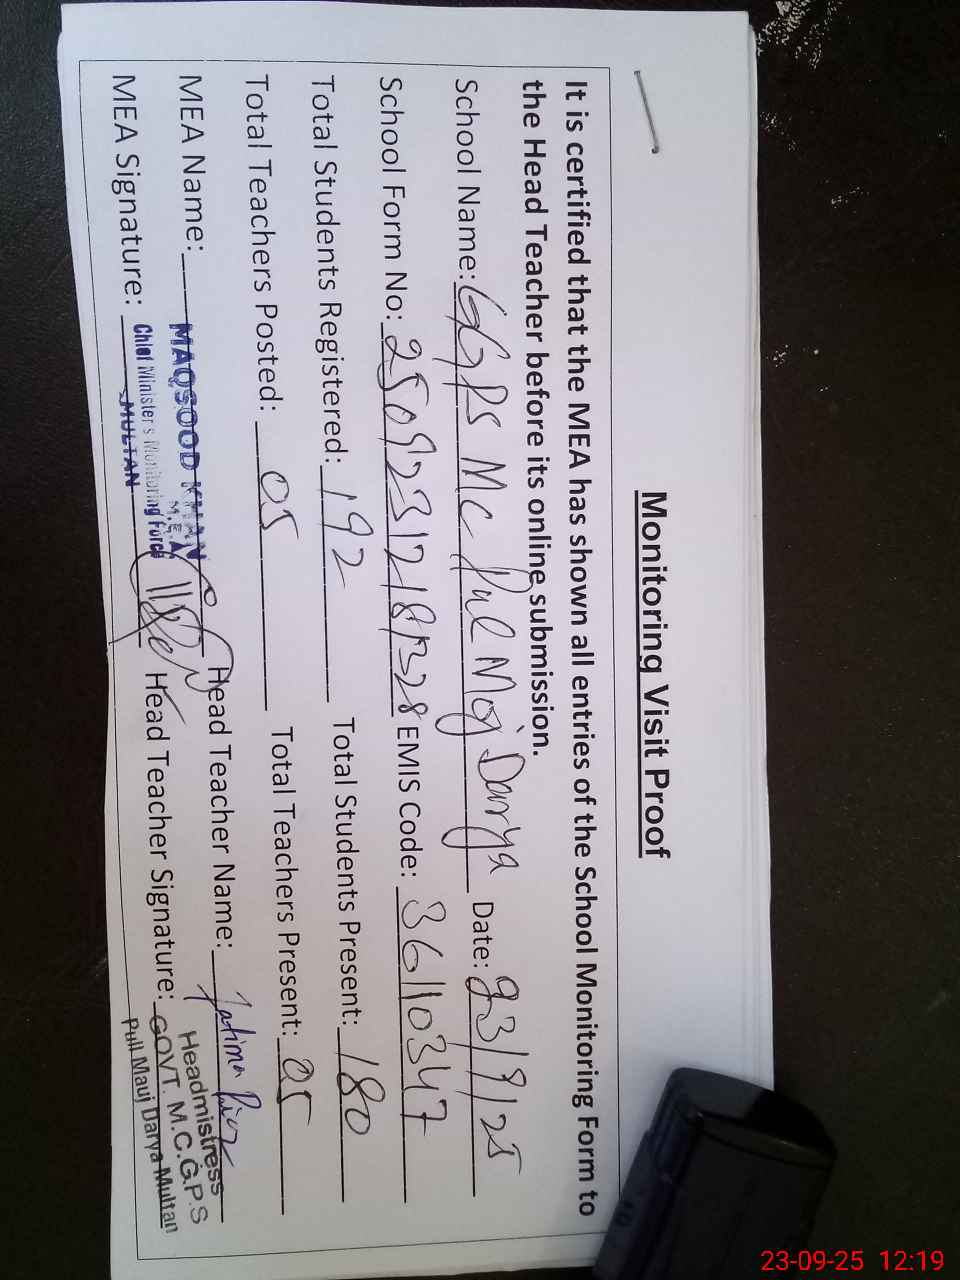 Monitoring Visit Proof
It is certified that the MEA has shown all entries of the School Monitoring Form to
the Head Teacher before its online submission.
School Name: GGPS Mc Pul Moj Darya Date: 23/9/25
School Form No: 25092312181328 EMIS Code: 36110347
Total Students Registered: 192 Total Students Present: 180
Total Teachers Posted: 05 Total Teachers Present: 05
MEA Name: MAQSOOD KHAN Head Teacher Name: Fatima
M.E.A
MEA Signature: Chief Minister's Monitoring Force Head Teacher Signature:
MULTAN
Headmistress
GOVT. M.C.G.P.S
Pull Mauj Darya Multan
23-09-25 12:19